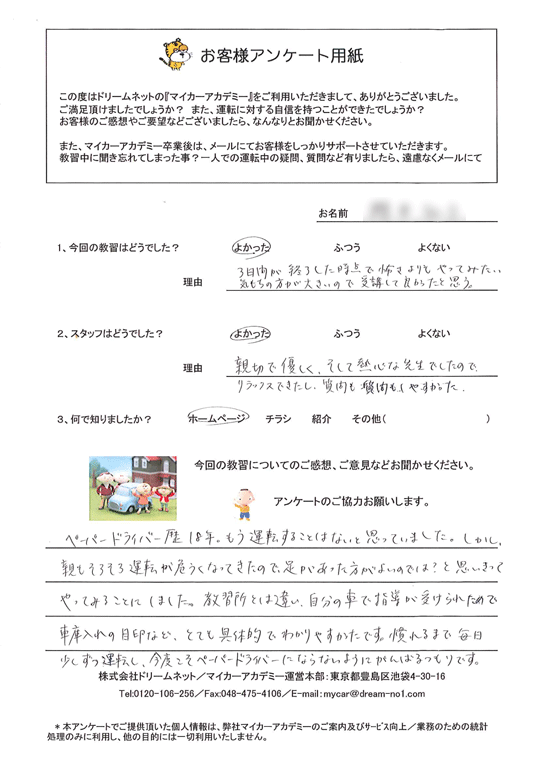 お客様アンケート用紙
この度はドリームネットの『マイカーアカデミー』をご利用いただきまして、ありがとうございました。
ご満足頂けましたでしょうか？ また、運転に対する自信を持つことができたでしょうか？
お客様のご感想やご要望などございましたら、なんなりとお聞かせください。
また、マイカーアカデミー卒業後は、メールにてお客様をしっかりサポートさせていただきます。
教習中に聞き忘れてしまった事？一人での運転中の疑問、質問など有りましたら、遠慮なくメールにて
お名前
1、今回の教習はどうでした？ よかった ふつう よくない
理由 3日間が終了した時点で怖さよりもやってみたい
気もちの方が大きいので受講して良かったと思う。
2、スタッフはどうでした？ よかった ふつう よくない
理由 親切で優しく、そして熱心な先生でしたので
リラックスできたし、質問も質問もしやすかった。
3、何で知りましたか？ ホームページ チラシ 紹介 その他( )
今回の教習についてのご感想、ご意見などお聞かせください。
アンケートのご協力お願いします。
ペーパードライバー歴18年。もう運転することはないと思っていました。しかし、
親もそろそろ運転が危うくなってきたので、足があった方がよいのでは？と思いきって
やってみることにしました。教習所とは違い、自分の車で指導が受けられたので
車庫入れの目印など、とても具体的でわかりやすかったです。慣れるまで毎日
少しずつ運転し、今度こそペーパードライバーにならないようにがんばるつもりです。
株式会社ドリームネット／マイカーアカデミー運営本部：東京都豊島区池袋4-30-16
Tel:0120-106-256／Fax:048-475-4106／E-mail:mycar@dream-no1.com
＊本アンケートでご提供頂いた個人情報は、弊社マイカーアカデミーのご案内及びサービス向上／業務のための統計
処理のみに利用し、他の目的には一切利用いたしません。